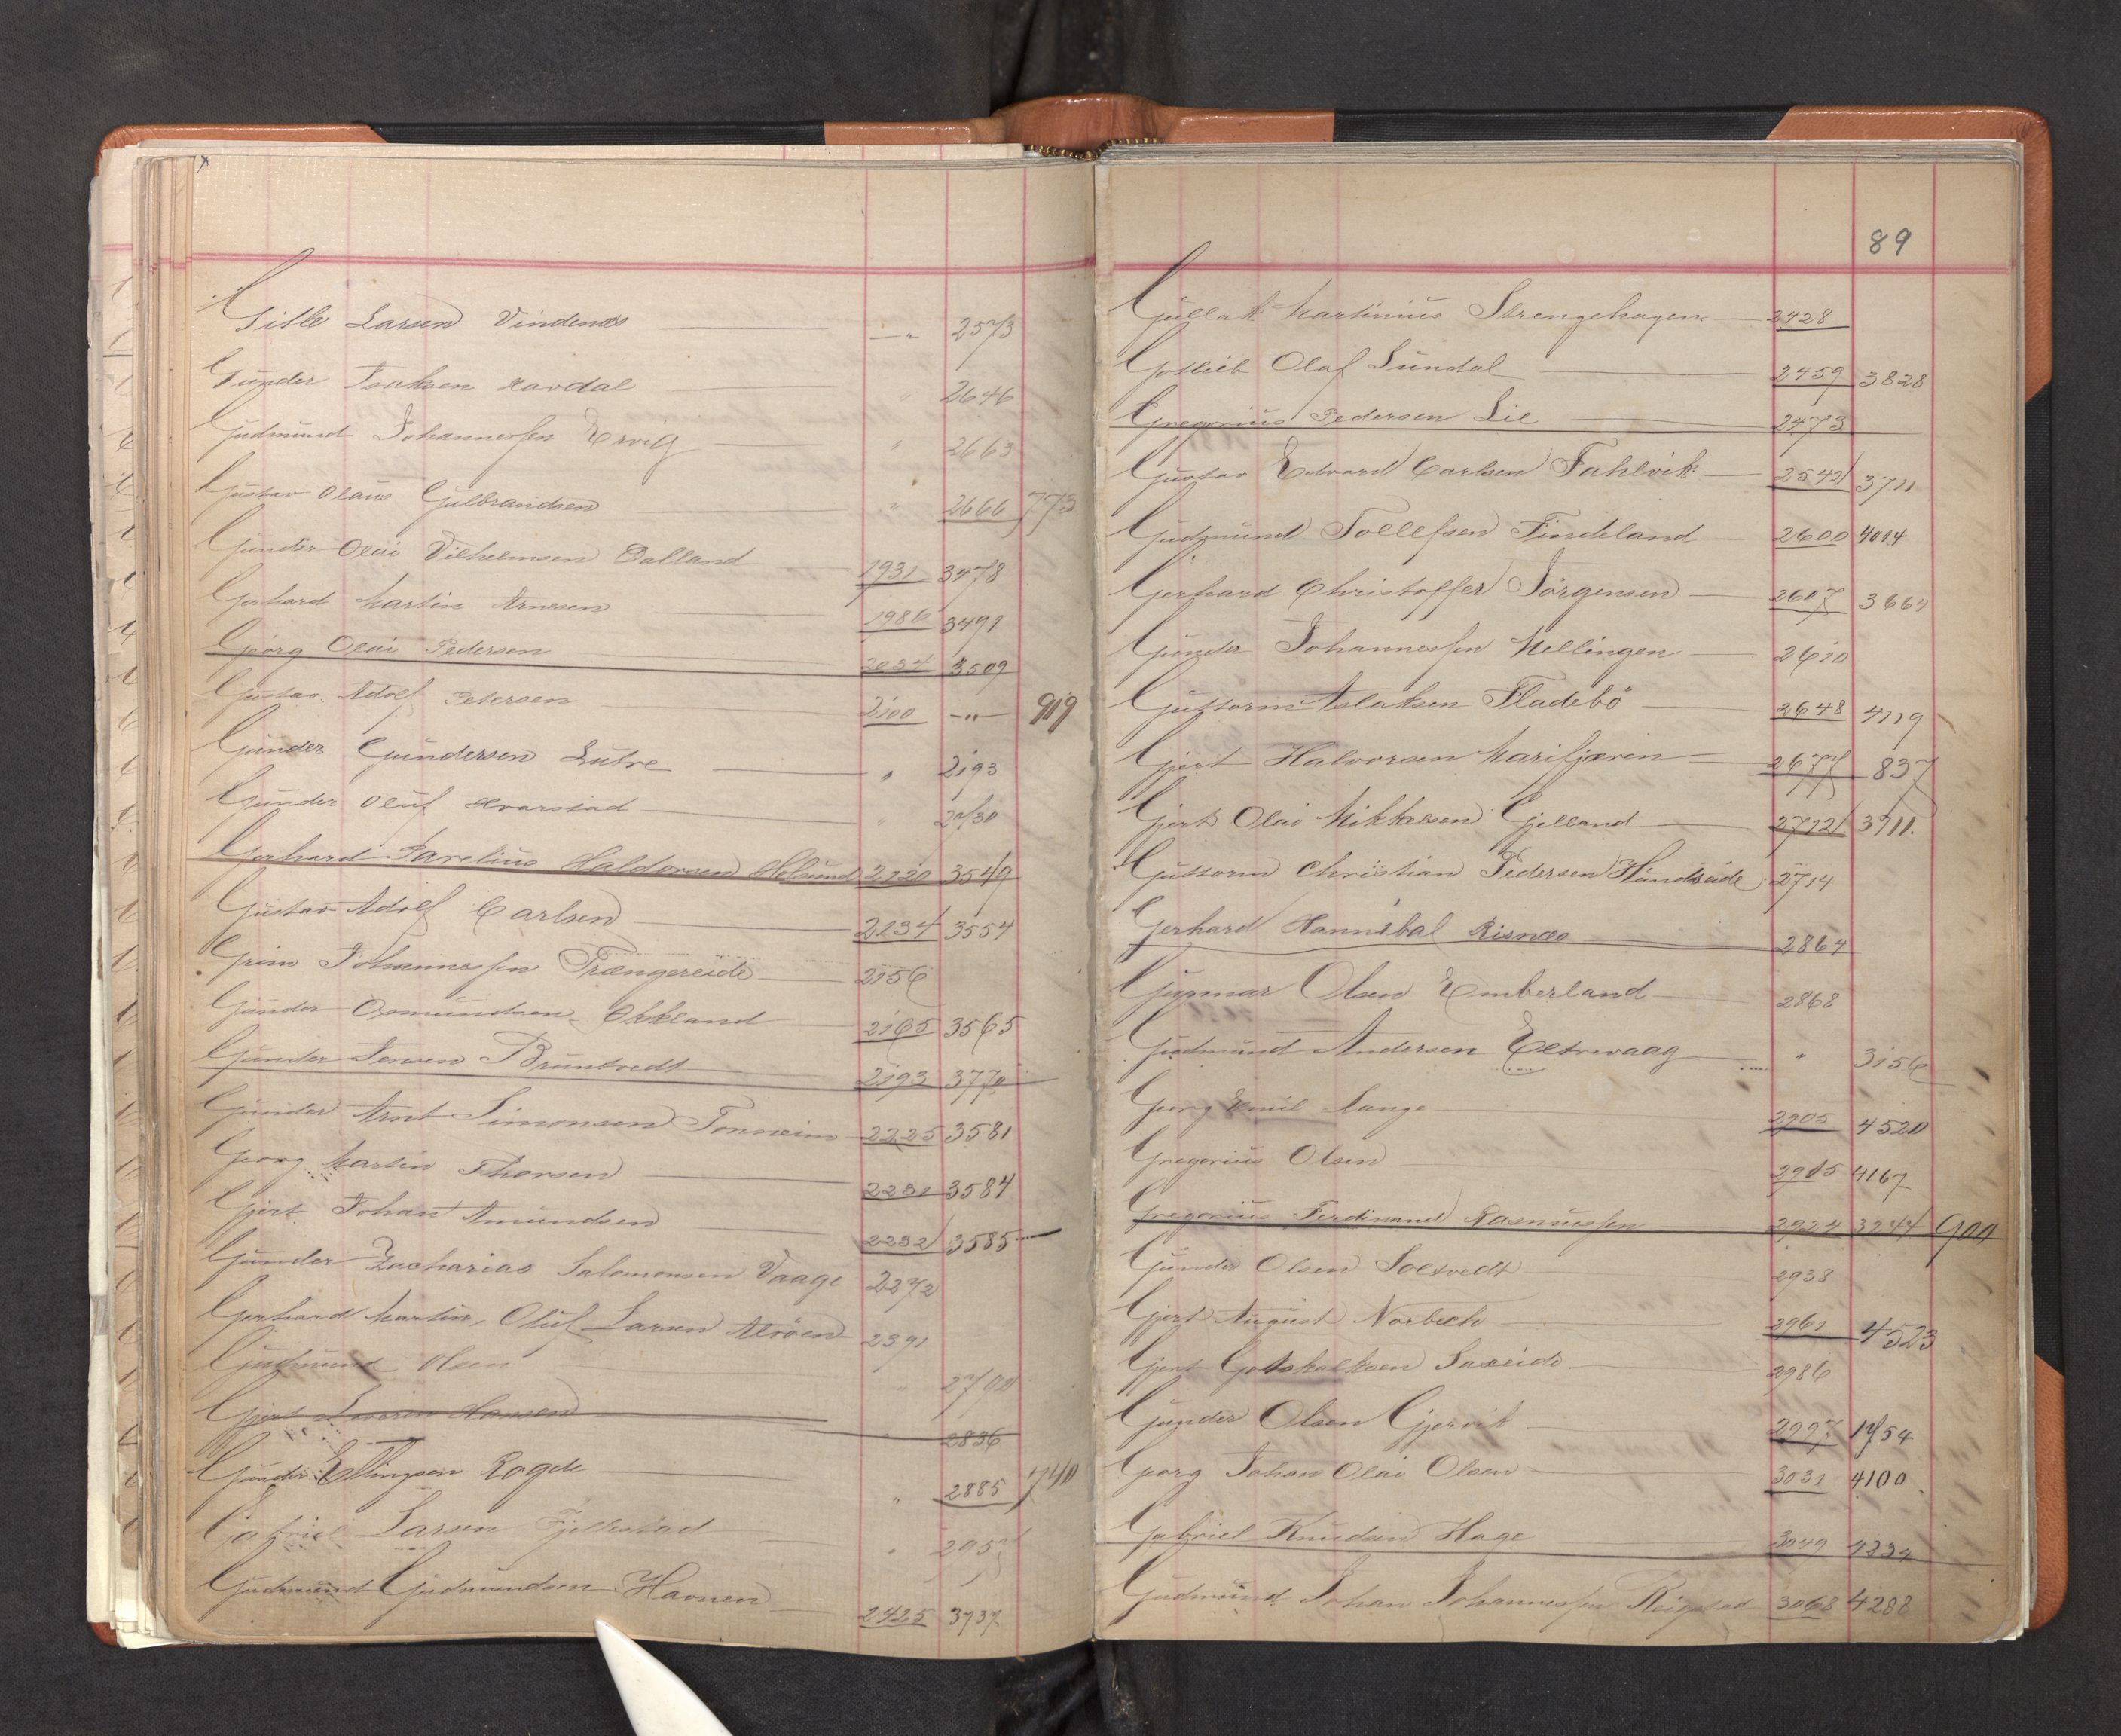 Gitle Larsen Vindenes — " 2573
Gunder Isaksen Havdal " 2646
Gudmund Johannessen Ervig " 2663
Gustav Olaus Gulbrandsen " 2666 773
Gunder Olai Vilhelmsen Dalland 1931 3478
Gerhard Martin Arnesen 1986 3491
Georg Olai Pedersen 2034 3509
Gustav Adolf Petersen 2100 —"— 919
Gunder Gundersen Lutre " 2193
Gunder Oluf Hvarstad " 2730
Gerhard Parelius Haldorsen 2120 3549
Gustav Adolf Carlsen 2134 3554
Grim Johannessen Trængereide 2156
Gunder Osmundsen Økland 2165 3565
Gunder Jensen Bruntvedt 2193 3770
Gunder Arnt Simonsen Tonheim 2225 3581
Georg Martin Thorsen 2231 3584
Gjert Johan Amundsen 2232 3585
Gunder Zacharias Salomonsen Vaage 2272
Gerhard Martin Oluf Larsen Alrøen 2391
Gudmund Olsen
Gjert Severin Hansen 2836
Gunder Ellingsen Rogde " 2885 740
Gabriel Larsen Fjellestad " 2957
Gudmund Gudmundsen Havnen 2425 3737
89
Gullak Martinius Strengehagen 2428
Gotlieb Olaf Lundal 2459 3828
Gregorius Pedersen Lie 2473
Gustav Edvard Carlsen Fahlvik 2542 3711
Gudmund Tollefsen Findeland 2600 4014
Gerhard Christoffer Jörgensen 2607 3664
Gunder Johannessen Mellingen 2610
Guttorm Aslaksen Fladebö 2648 4119
Gjert Halvorsen Marifjæren 2677 837
Gjert Olai Mikkelsen Gjelland 2712 3711.
Guttorm Christian Pedersen Hundseide 2714
Gerhard Hannibal Risnes 2864
Gunnar Olsen Emberland 2868
Gudmund Andersen Eltrevaag " 3156
Georg Emil Lange 2905 4520
Gregorius Olsen 2915 4167
Gregorius Ferdinand Rasmussen 2924 3244 900
Gunder Olsen Soltvedt 2938
Gjert August Norbech 2961 4523
Gjert Gotskalksen Saxeide 2986
Gunder Olsen Gjervik 2997 1754
Georg Johan Olai Olsen 3031 4100
Gabriel Knudsen Hage 3049 4234
Gudmund Johan Johannessen Reigstad 3068 4288